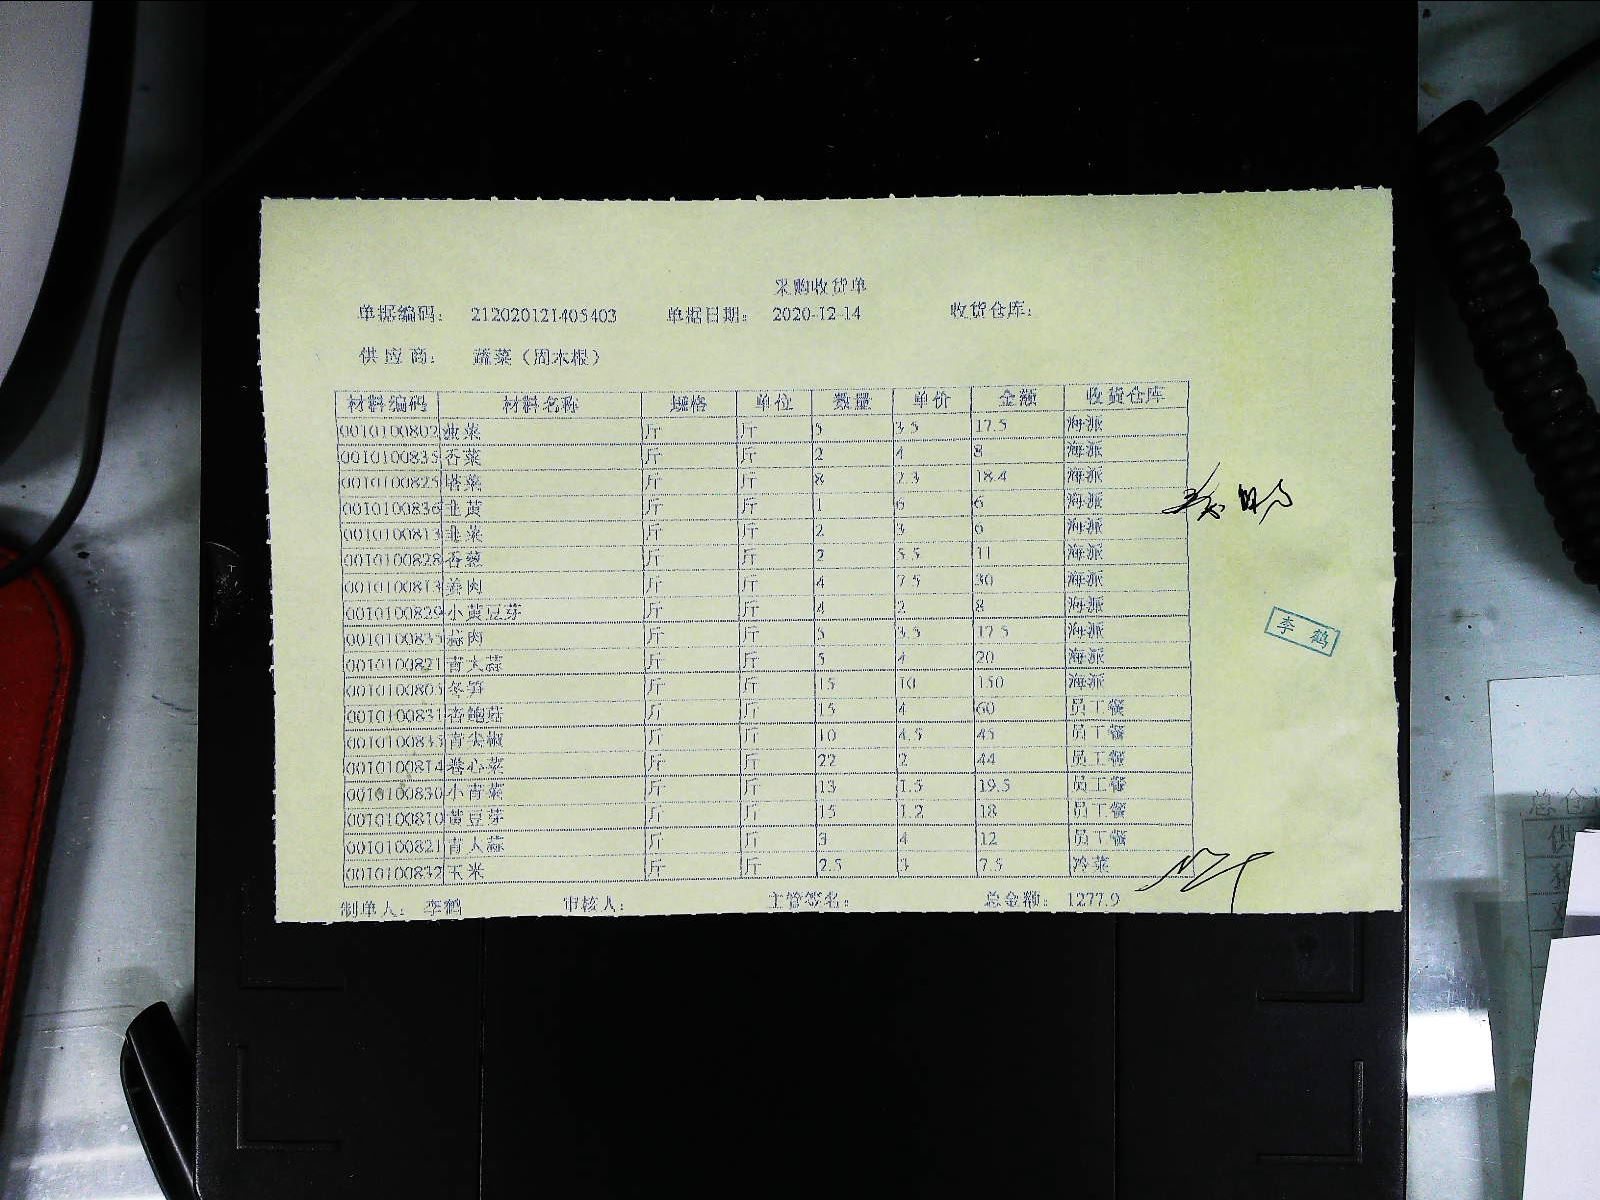 采购收货单
单据编码： 212020121405403 单据日期： 2020-12-14 收货仓库：
供应商： 蔬菜（周木根）
材料编码 材料名称 规格 单位 数量 单价 金额 收货仓库
0010100802 菠菜 斤 斤 5 3.5 17.5 海派
0010100835 香菜 斤 斤 2 4 8 海派
0010100825 塔菜 斤 斤 8 2.3 18.4 海派
0010100836 韭黄 斤 斤 1 6 6 海派
0010100813 韭菜 斤 斤 2 3 6 海派
0010100828 香葱 斤 斤 2 5.5 11 海派
0010100813 姜肉 斤 斤 4 7.5 30 海派
0010100829 小黄豆芽 斤 斤 4 2 8 海派
0010100835 蒜肉 斤 斤 5 3.5 17.5 海派
0010100821 青大蒜 斤 斤 5 4 20 海派
0010100805 冬笋 斤 斤 15 10 150 海派
0010100831 杏鲍菇 斤 斤 15 4 60 员工餐
0010100835 青尖椒 斤 斤 10 4.5 45 员工餐
0010100814 卷心菜 斤 斤 22 2 44 员工餐
0010100830 小青菜 斤 斤 13 1.5 19.5 员工餐
0010100810 黄豆芽 斤 斤 15 1.2 18 员工餐
0010100821 青大蒜 斤 斤 3 4 12 员工餐
0010100832 玉米 斤 斤 2.5 3 7.5 冷菜
制单人： 李鹤 审核人： 主管签名： 总金额： 1277.9
李鹤
总仓
供